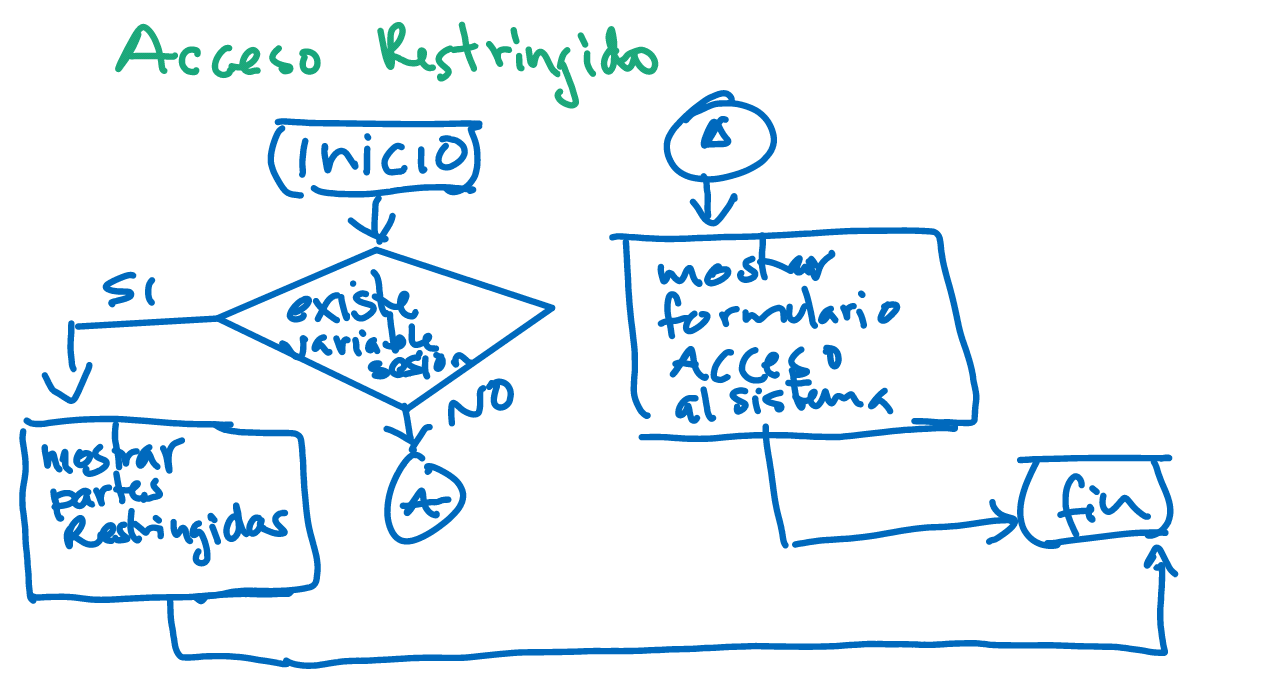 Acceso Restringido
INICIO
SI
existe
variable
sesion
NO
A
mostrar
partes
Restringidas
A
mostrar
formulario
ACCESO
al sistema
fin